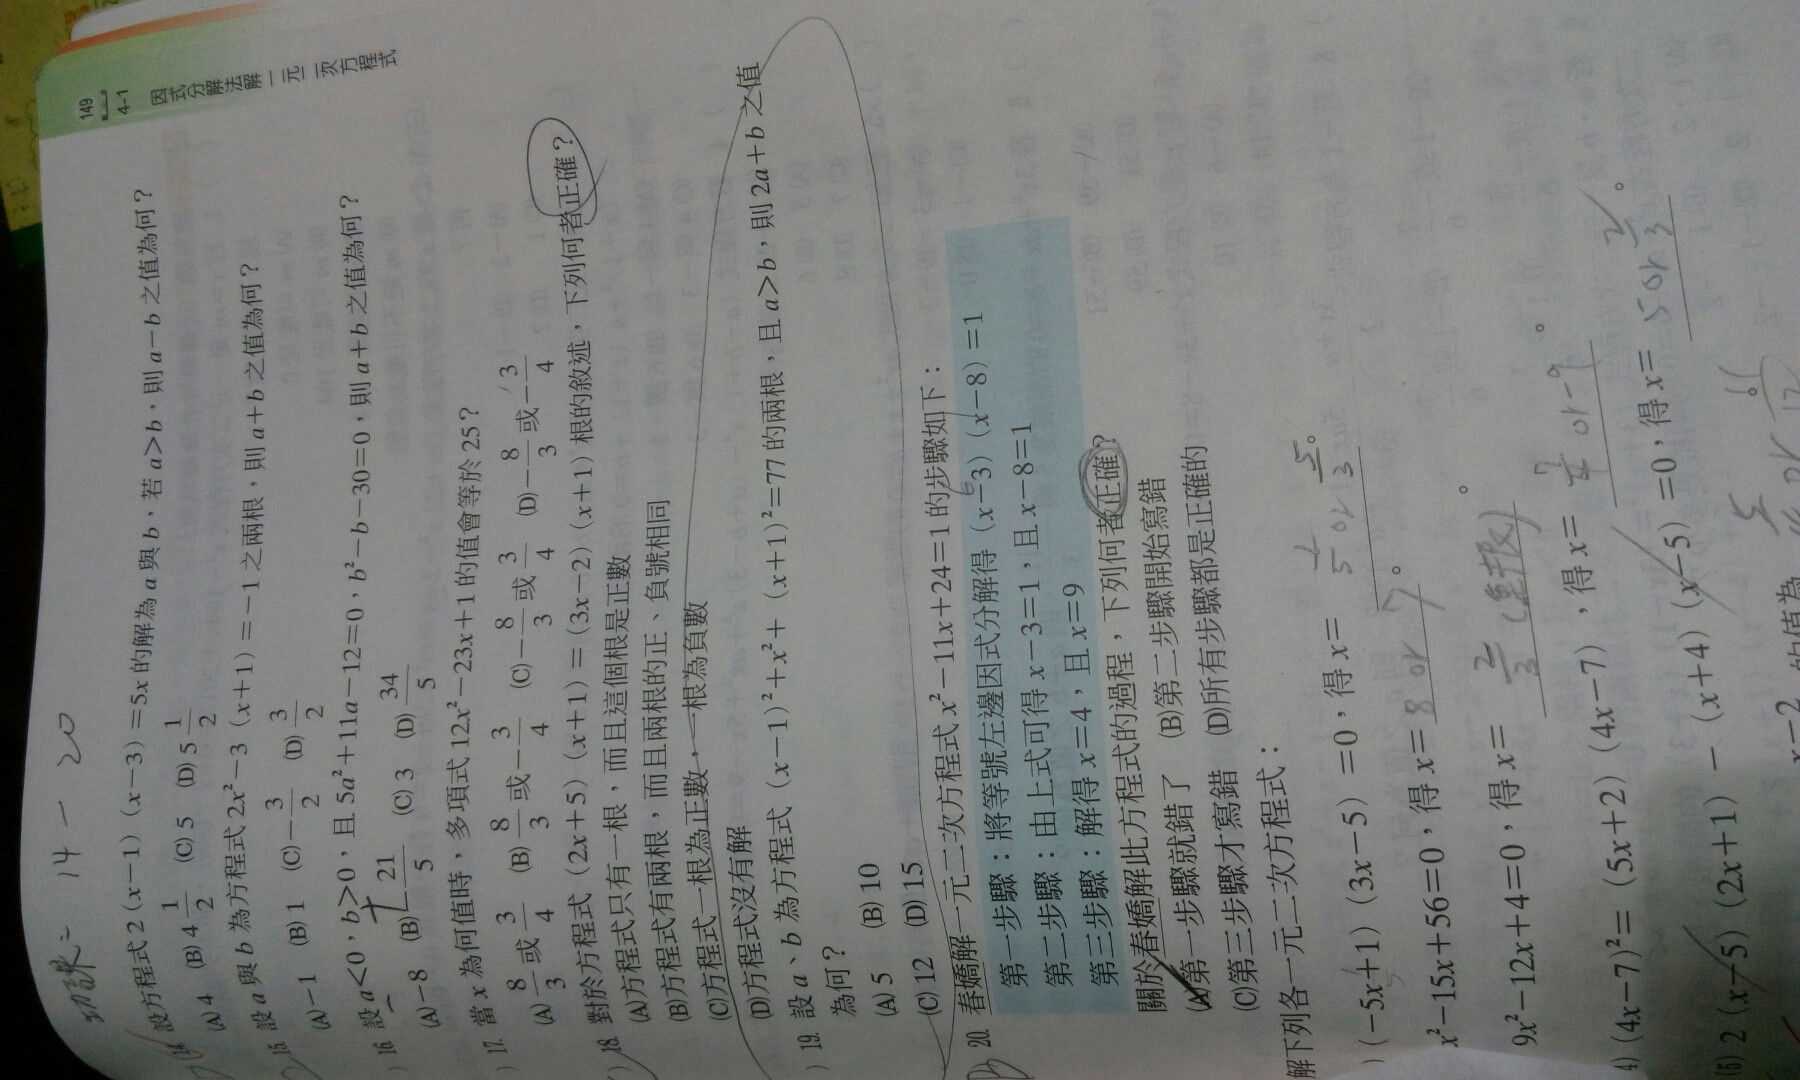 149
4-1
因式分解法解一元二次方程式
功課= 14-20
14. 設方程式2(x-1)(x-3)=5x的解為a與b,若a>b,則a-b之值為何?
(A) 4 (B) 4 1/2 (C) 5 (D) 5 1/2
15. 設a與b為方程式2x²-3(x+1)=-1之兩根,則a+b之值為何?
(A)-1 (B) 1 (C)-3/2 (D) 3/2
) 16. 設a<0,b>0,且5a²+11a-12=0,b²-b-30=0,則a+b之值為何?
(A)-8 (B)-21/5 (C) 3 (D) 34/5
) 17. 當x為何值時,多項式12x²-23x+1的值會等於25?
(A) 8/3 或 3/4 (B) 8/3 或-3/4 (C)-8/3 或 3/4 (D)-8/3 或-3/4
) 18. 對於方程式(2x+5)(x+1)=(3x-2)(x+1)根的敘述,下列何者正確?
(A)方程式只有一根,而且這個根是正數
(B)方程式有兩根,而且兩根的正、負號相同
(C)方程式一根為正數,一根為負數
(D)方程式沒有解
) 19. 設a、b為方程式(x-1)²+x²+(x+1)²=77的兩根,且a>b,則2a+b之值
為何?
(A) 5 (B) 10
(C) 12 (D) 15
20. 春嬌解一元二次方程式x²-11x+24=1的步驟如下:
第一步驟:將等號左邊因式分解得(x-3)(x-8)=1
第二步驟:由上式可得x-3=1,且x-8=1
第三步驟:解得x=4,且x=9
關於春嬌解此方程式的過程,下列何者正確?
(A)第一步驟就錯了 (B)第二步驟開始寫錯
(C)第三步驟才寫錯 (D)所有步驟都是正確的
解下列各一元二次方程式:
) (-5x+1)(3x-5)=0,得x= 1/5 or 5/3 。
x²-15x+56=0,得x= 8 or 7 。
9x²-12x+4=0,得x= 2/3 (重根) 。
4) (4x-7)²=(5x+2)(4x-7),得x= 7/4 or -9 。
(5) 2(x-5)(2x+1)-(x+4)(x-5)=0,得x= 5 or 2/3 。